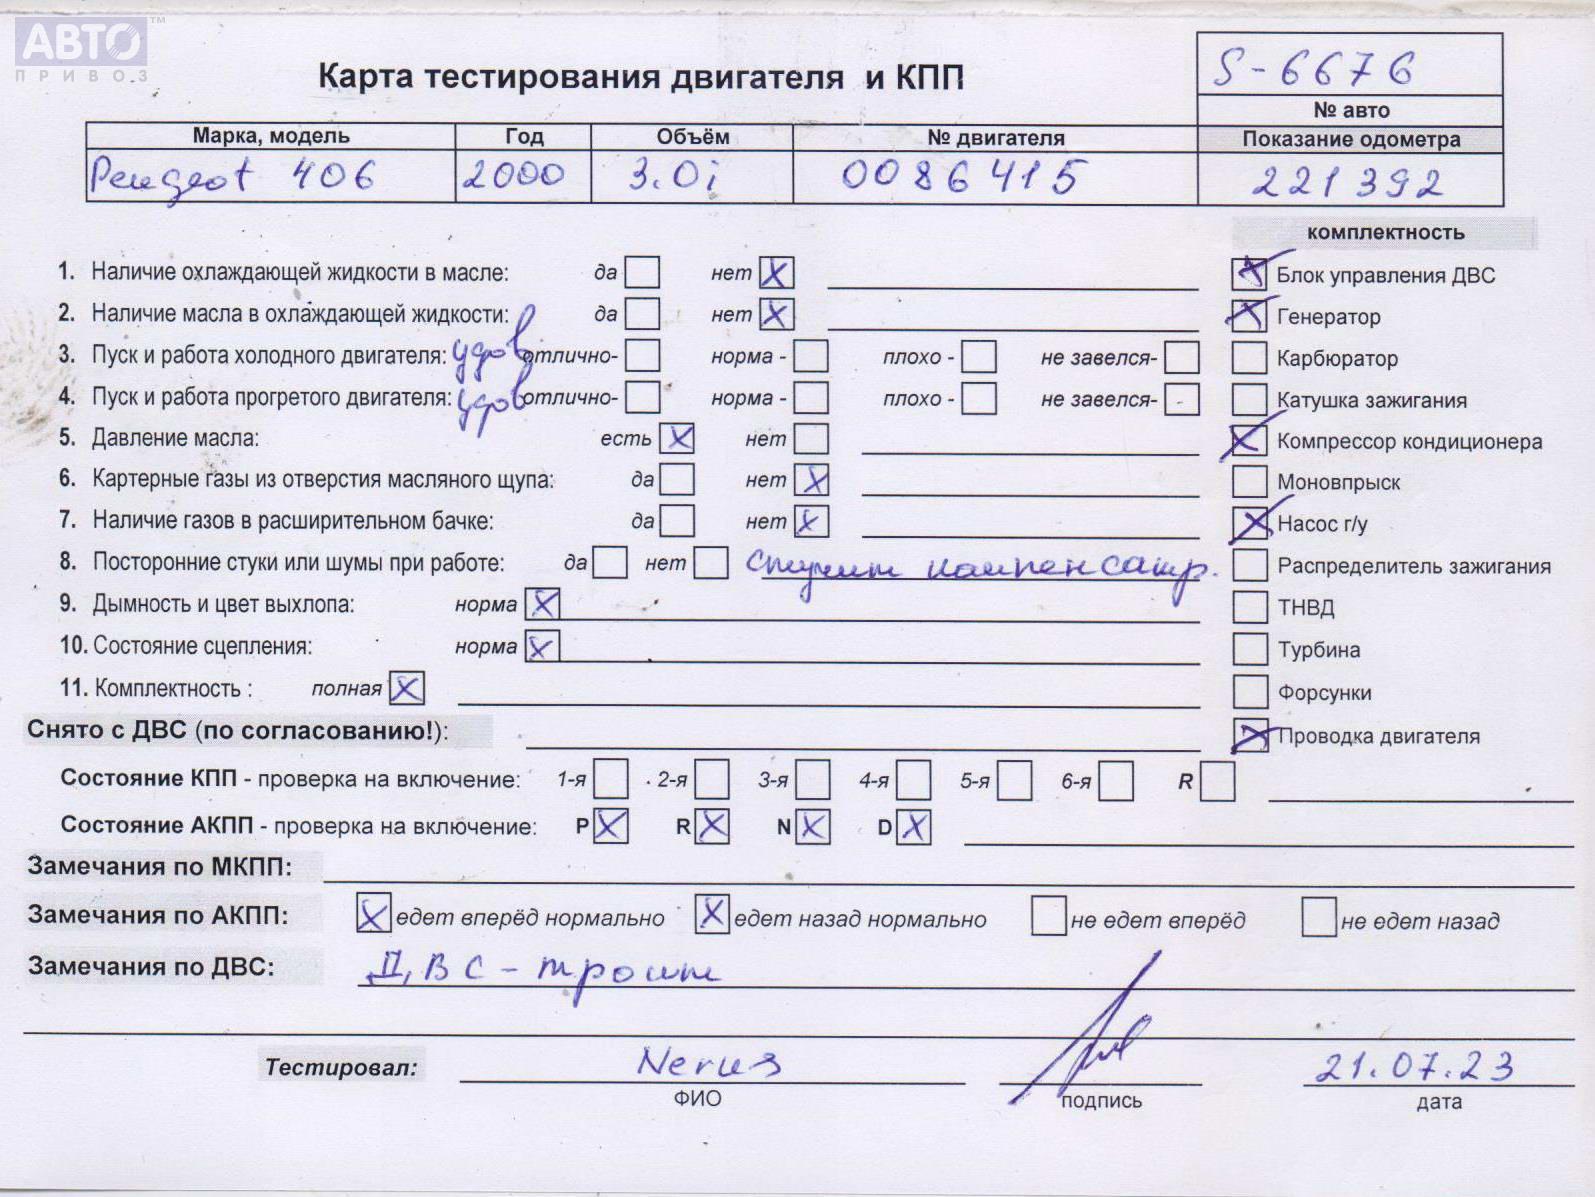 АВТО™
ПРИВОЗ
Карта тестирования двигателя и КПП
S-6676
№ авто
Марка, модель Год Объём № двигателя Показание одометра
Peugeot 406 2000 3.0i 0086415 221392
комплектность
1. Наличие охлаждающей жидкости в масле: да нет X
Блок управления ДВС
2. Наличие масла в охлаждающей жидкости: да нет X
Генератор
3. Пуск и работа холодного двигателя: удов отлично- норма - плохо - не завелся-
Карбюратор
4. Пуск и работа прогретого двигателя: удов отлично- норма - плохо - не завелся-
Катушка зажигания
5. Давление масла: есть X нет
Компрессор кондиционера
6. Картерные газы из отверстия масляного щупа: да нет X
Моновпрыск
7. Наличие газов в расширительном бачке: да нет X
Насос г/у
8. Посторонние стуки или шумы при работе: да нет стучит компенсатр.
Распределитель зажигания
9. Дымность и цвет выхлопа: норма X
ТНВД
10. Состояние сцепления: норма X
Турбина
11. Комплектность : полная X
Форсунки
Снято с ДВС (по согласованию!):
Проводка двигателя
Состояние КПП - проверка на включение: 1-я 2-я 3-я 4-я 5-я 6-я R
Состояние АКПП - проверка на включение: P X R X N X D X
Замечания по МКПП:
Замечания по АКПП: X едет вперёд нормально X едет назад нормально не едет вперёд не едет назад
Замечания по ДВС: ДВС - троит
Тестировал: 21.07.23
ФИО подпись дата